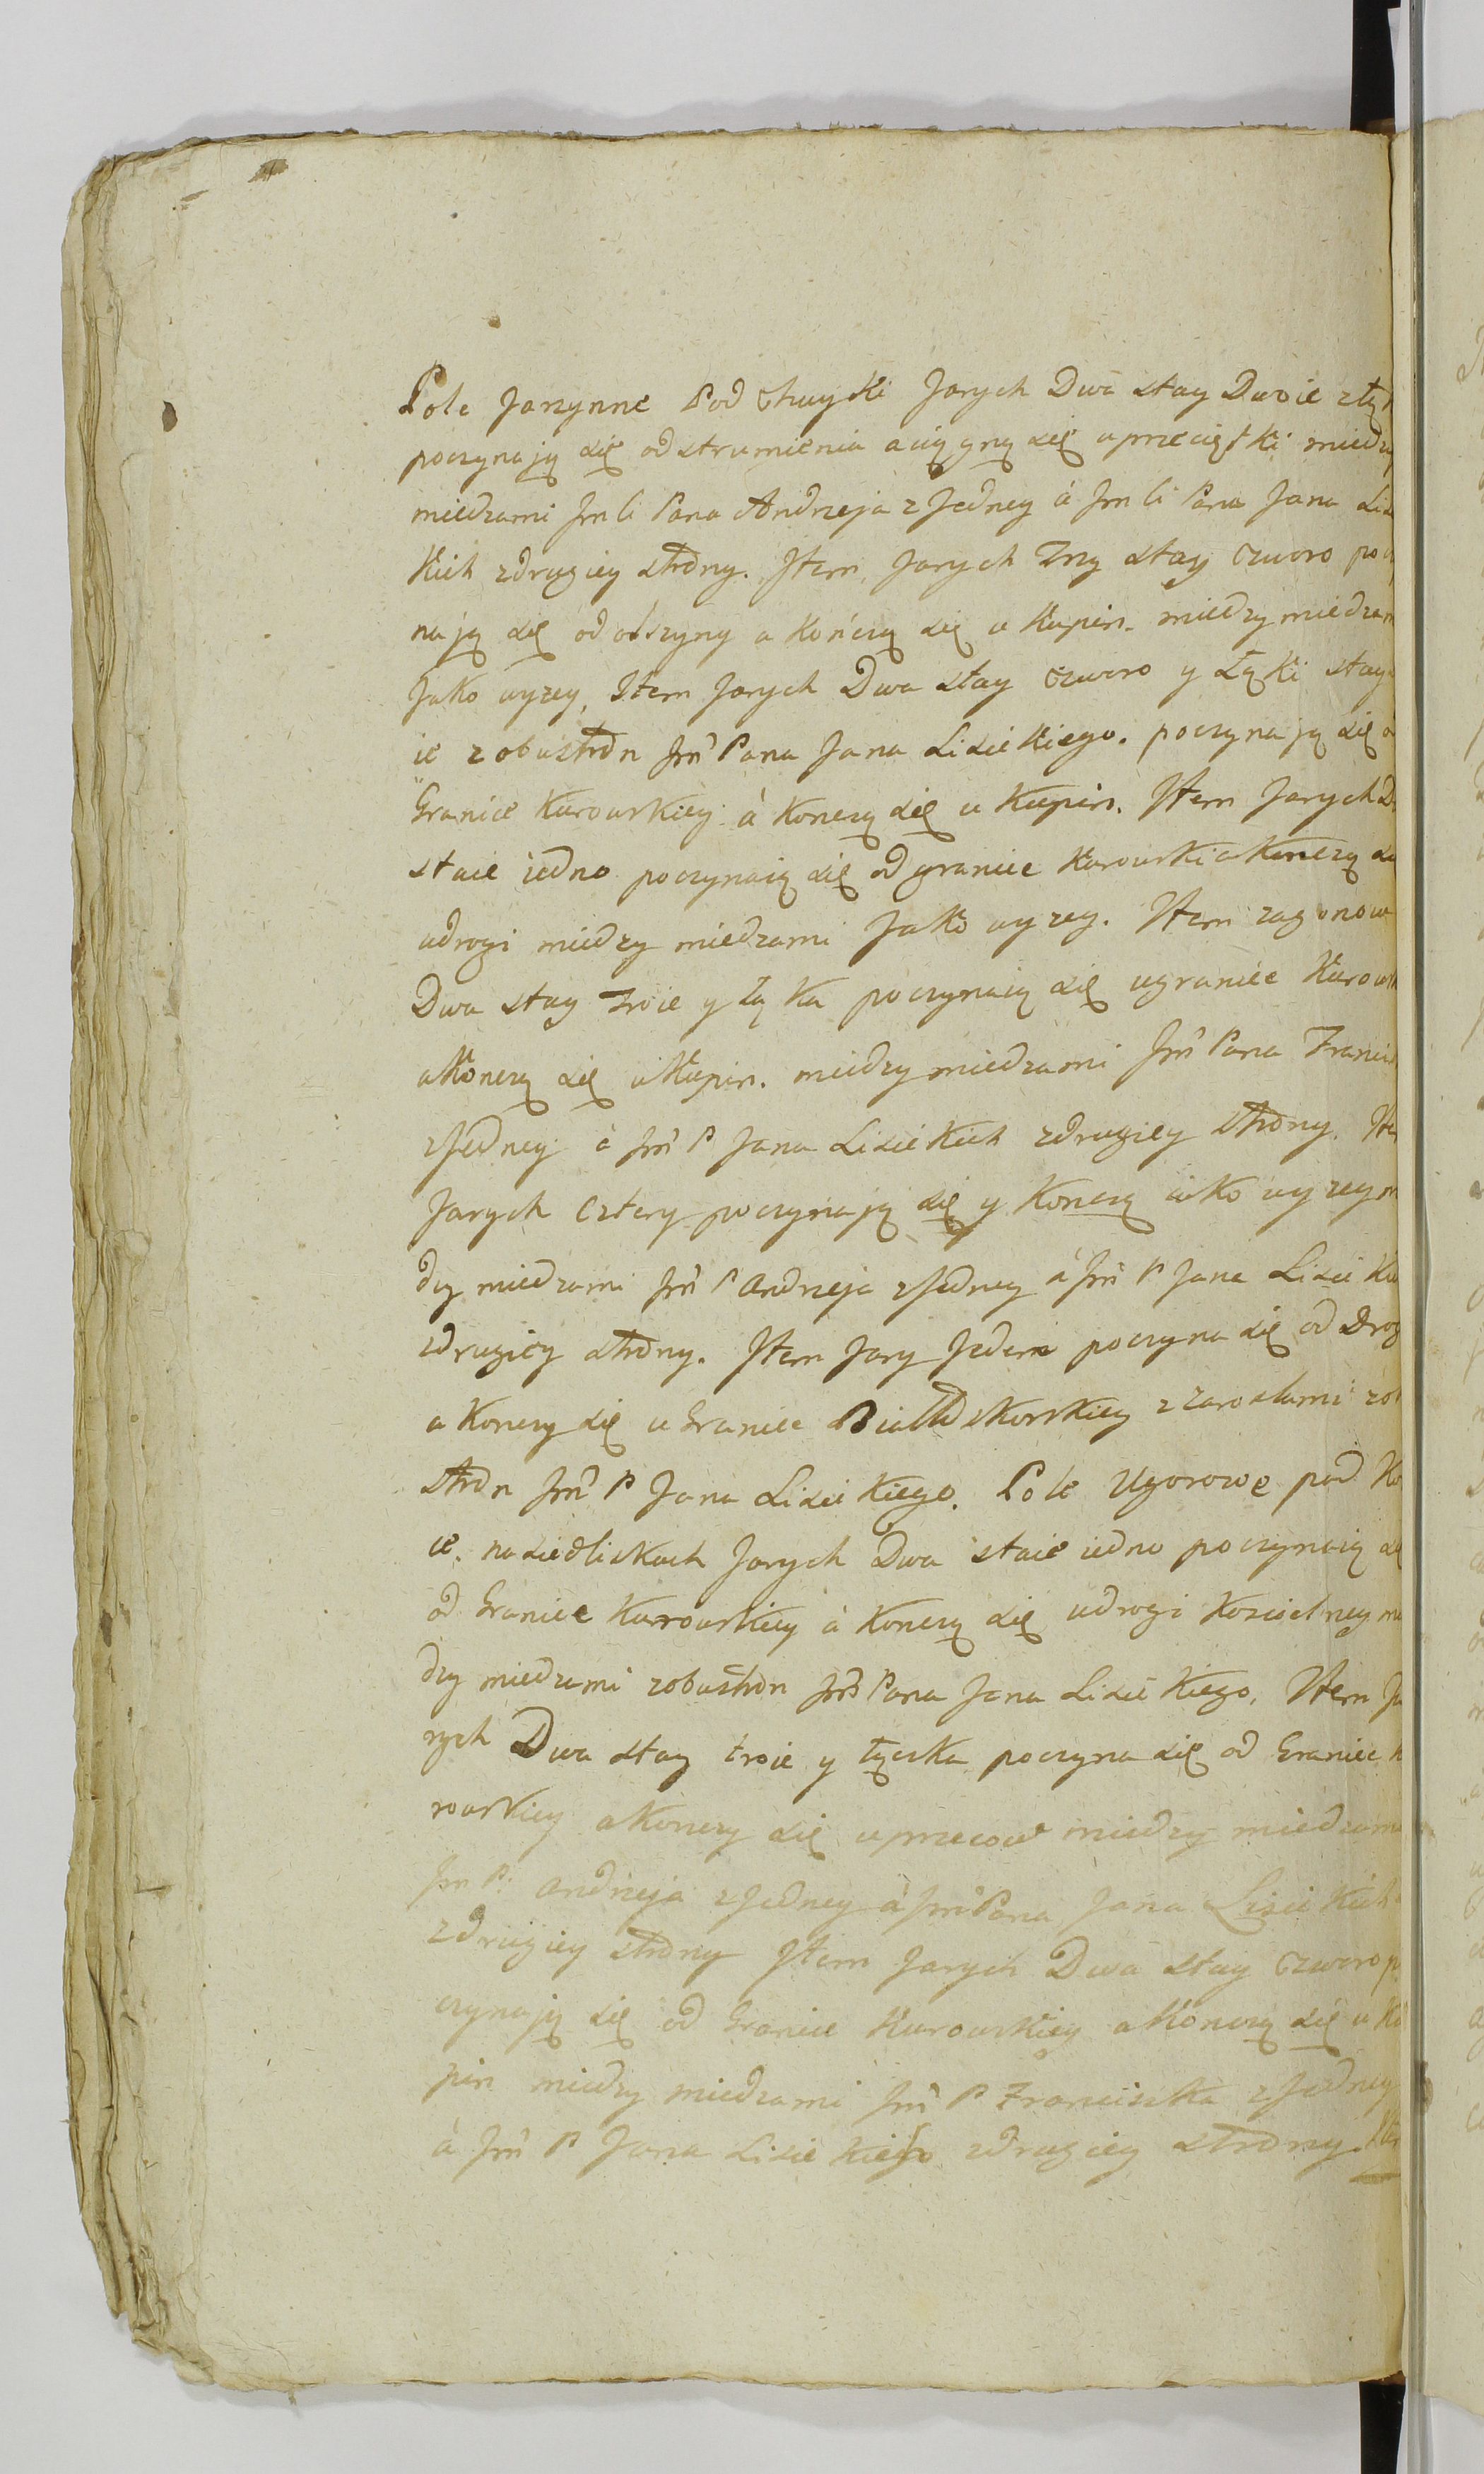 Pole Jarzynne Pod Chuyki Jarych Dwa stay Dwoie z łą
poczynają się od strumienia a ciągną się u przeciętki miedzy
miedzami Jmli Pana Andrzeja z Jedney á Jmli Pana Jana Lisie
Kich z drugiey strony. Item Jarych Trzy stay czworo poczy
nają się od olszyny a Kończą się u Kupin. miedzy miedzam
Jako wyzey, Item Jarych Dwa stay czworo y Łąki stay
ie z obustron Jmć Pana Jana Lisieckiego. poczynają się o
Granice Kurowskiey á Konczą się u Kupin. Item Jarych D
staie iedno poczynaią się od granice Kurowski a Konczą się
u drogi miedzy miedzami Jako wyzey. Item zagonow
Dwa stay Troie y łąka poczynaią się u granice Kurowsk
a Konczą się u Kupin. miedzy miedzami Jmć Pana Franci
z Jedney á Jmć P Jana Lisieckich z drugiey strony. Ite
Jarych cztery poczynają się y Konczą iako wyzey m
dzy miedzami Jmć P Andrzeja z Jedney á Jmć P Jana Lisiecki
z drugiey strony. Item Jary Jeden poczyna się od Drog
a Konczy się u Granice Białoskorskiey z zaroslami z ob
stron Jmć P Jana Lisieckiego. Pole Ugorowe pod Ko
ie. na siedliskach Jarych Dwa staie iedno poczynaią się
od Granice Kurowskiey á Konczą się u drogi Koscielney mie
dzy miedzami z obustron Jmć Pana Jana Lisieckiego. Item Ja
rych Dwa stay troie y łączka poczyna się od Granice K
rowskiey a Konczy się u przecow miedzy miedzami
Jm P: Andrzeja z Jedney á Jmć Pana Jana Lisieckich
z drugiey strony Item Jarych Dwa stay czworo po
czynają się od Granice Kurowskiey a Konczą się u Ku
pin miedzy miedzami Jmć P Franciszka z Jedney
á Jmć P Jana Lisieckiego z drugiey strony. Ite